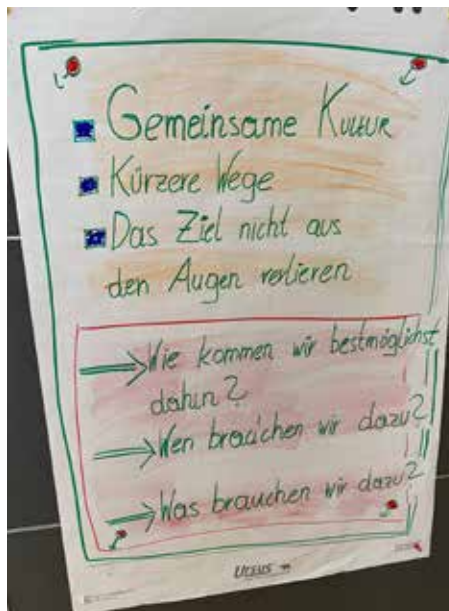 Gemeinsame Kultur
Kürzere Wege
Das Ziel nicht aus
den Augen verlieren
Wie kommen wir bestmöglichst
dahin?
Wen brauchen wir dazu?
Was brauchen wir dazu?